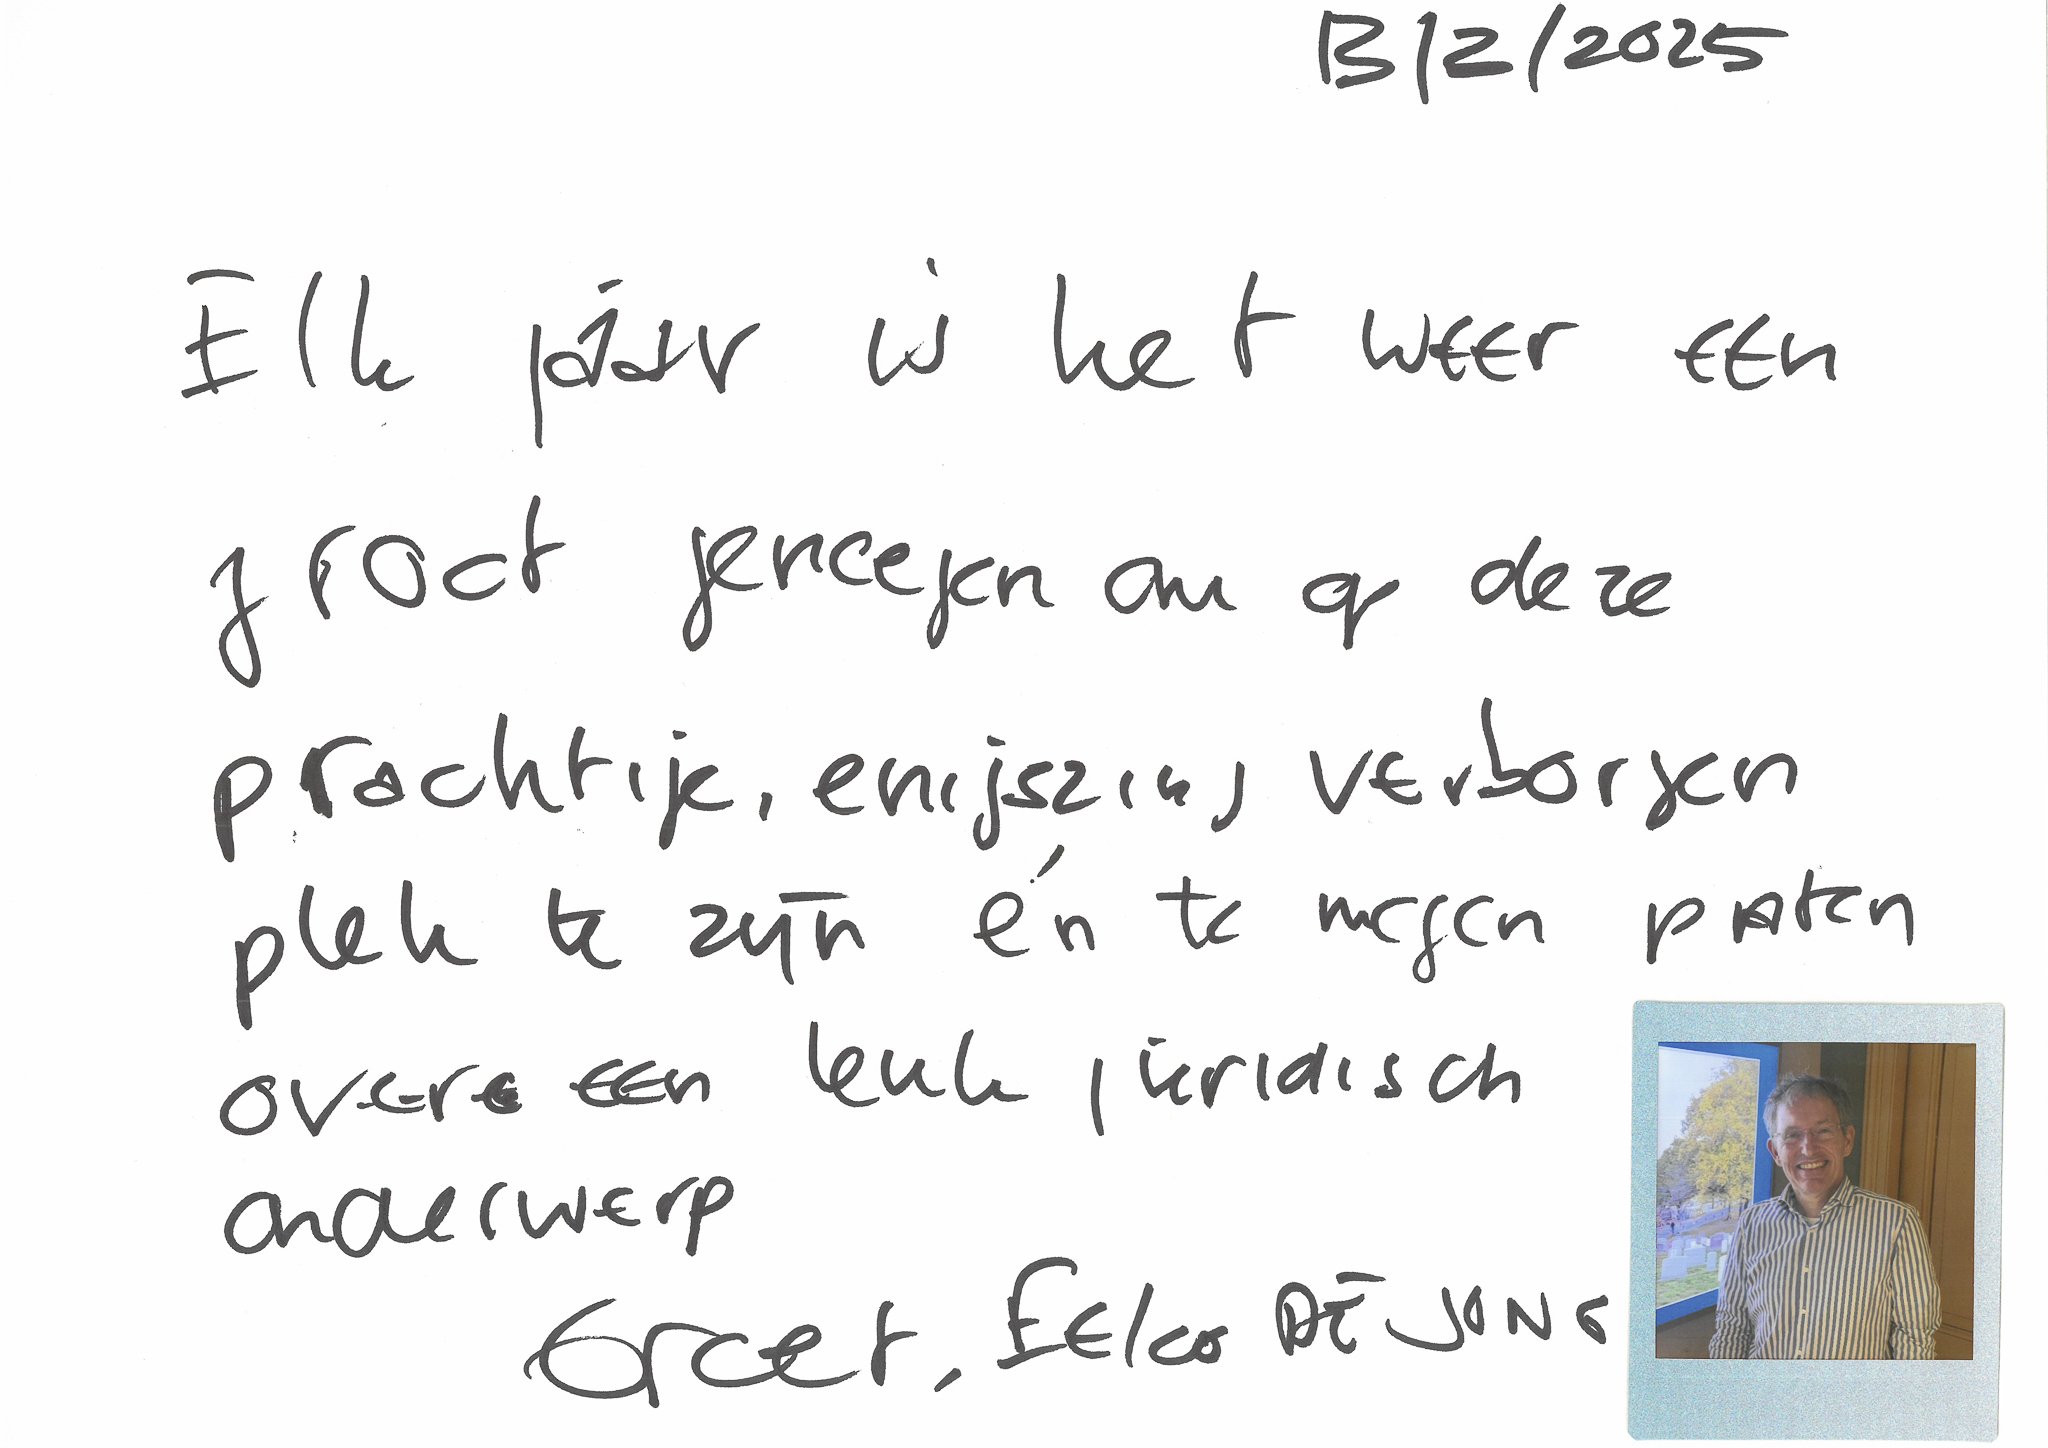 13/2/2025
Elk jaar is het weer een
groot genoegen om op deze
prachtige, enigszins verborgen
plek te zijn én te mogen praten
over een leuk juridisch
onderwerp
Groet, Eelco DE JONG